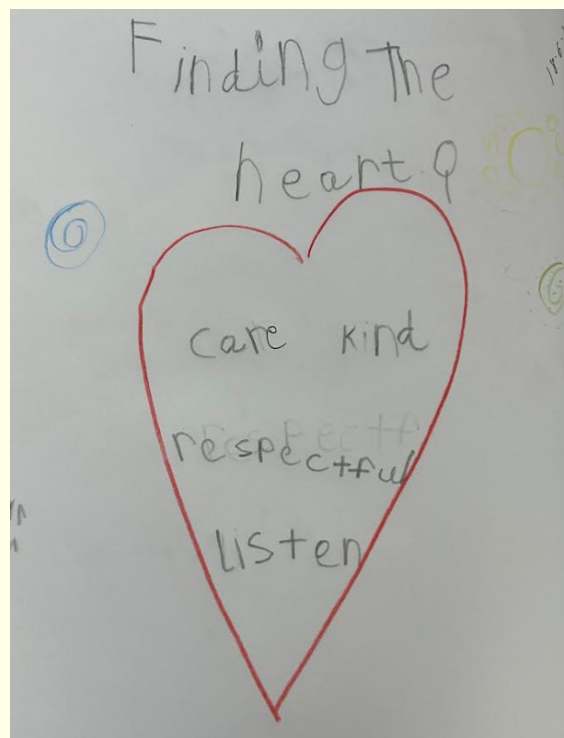 Finding The
heart.
care kind
respectful
listen